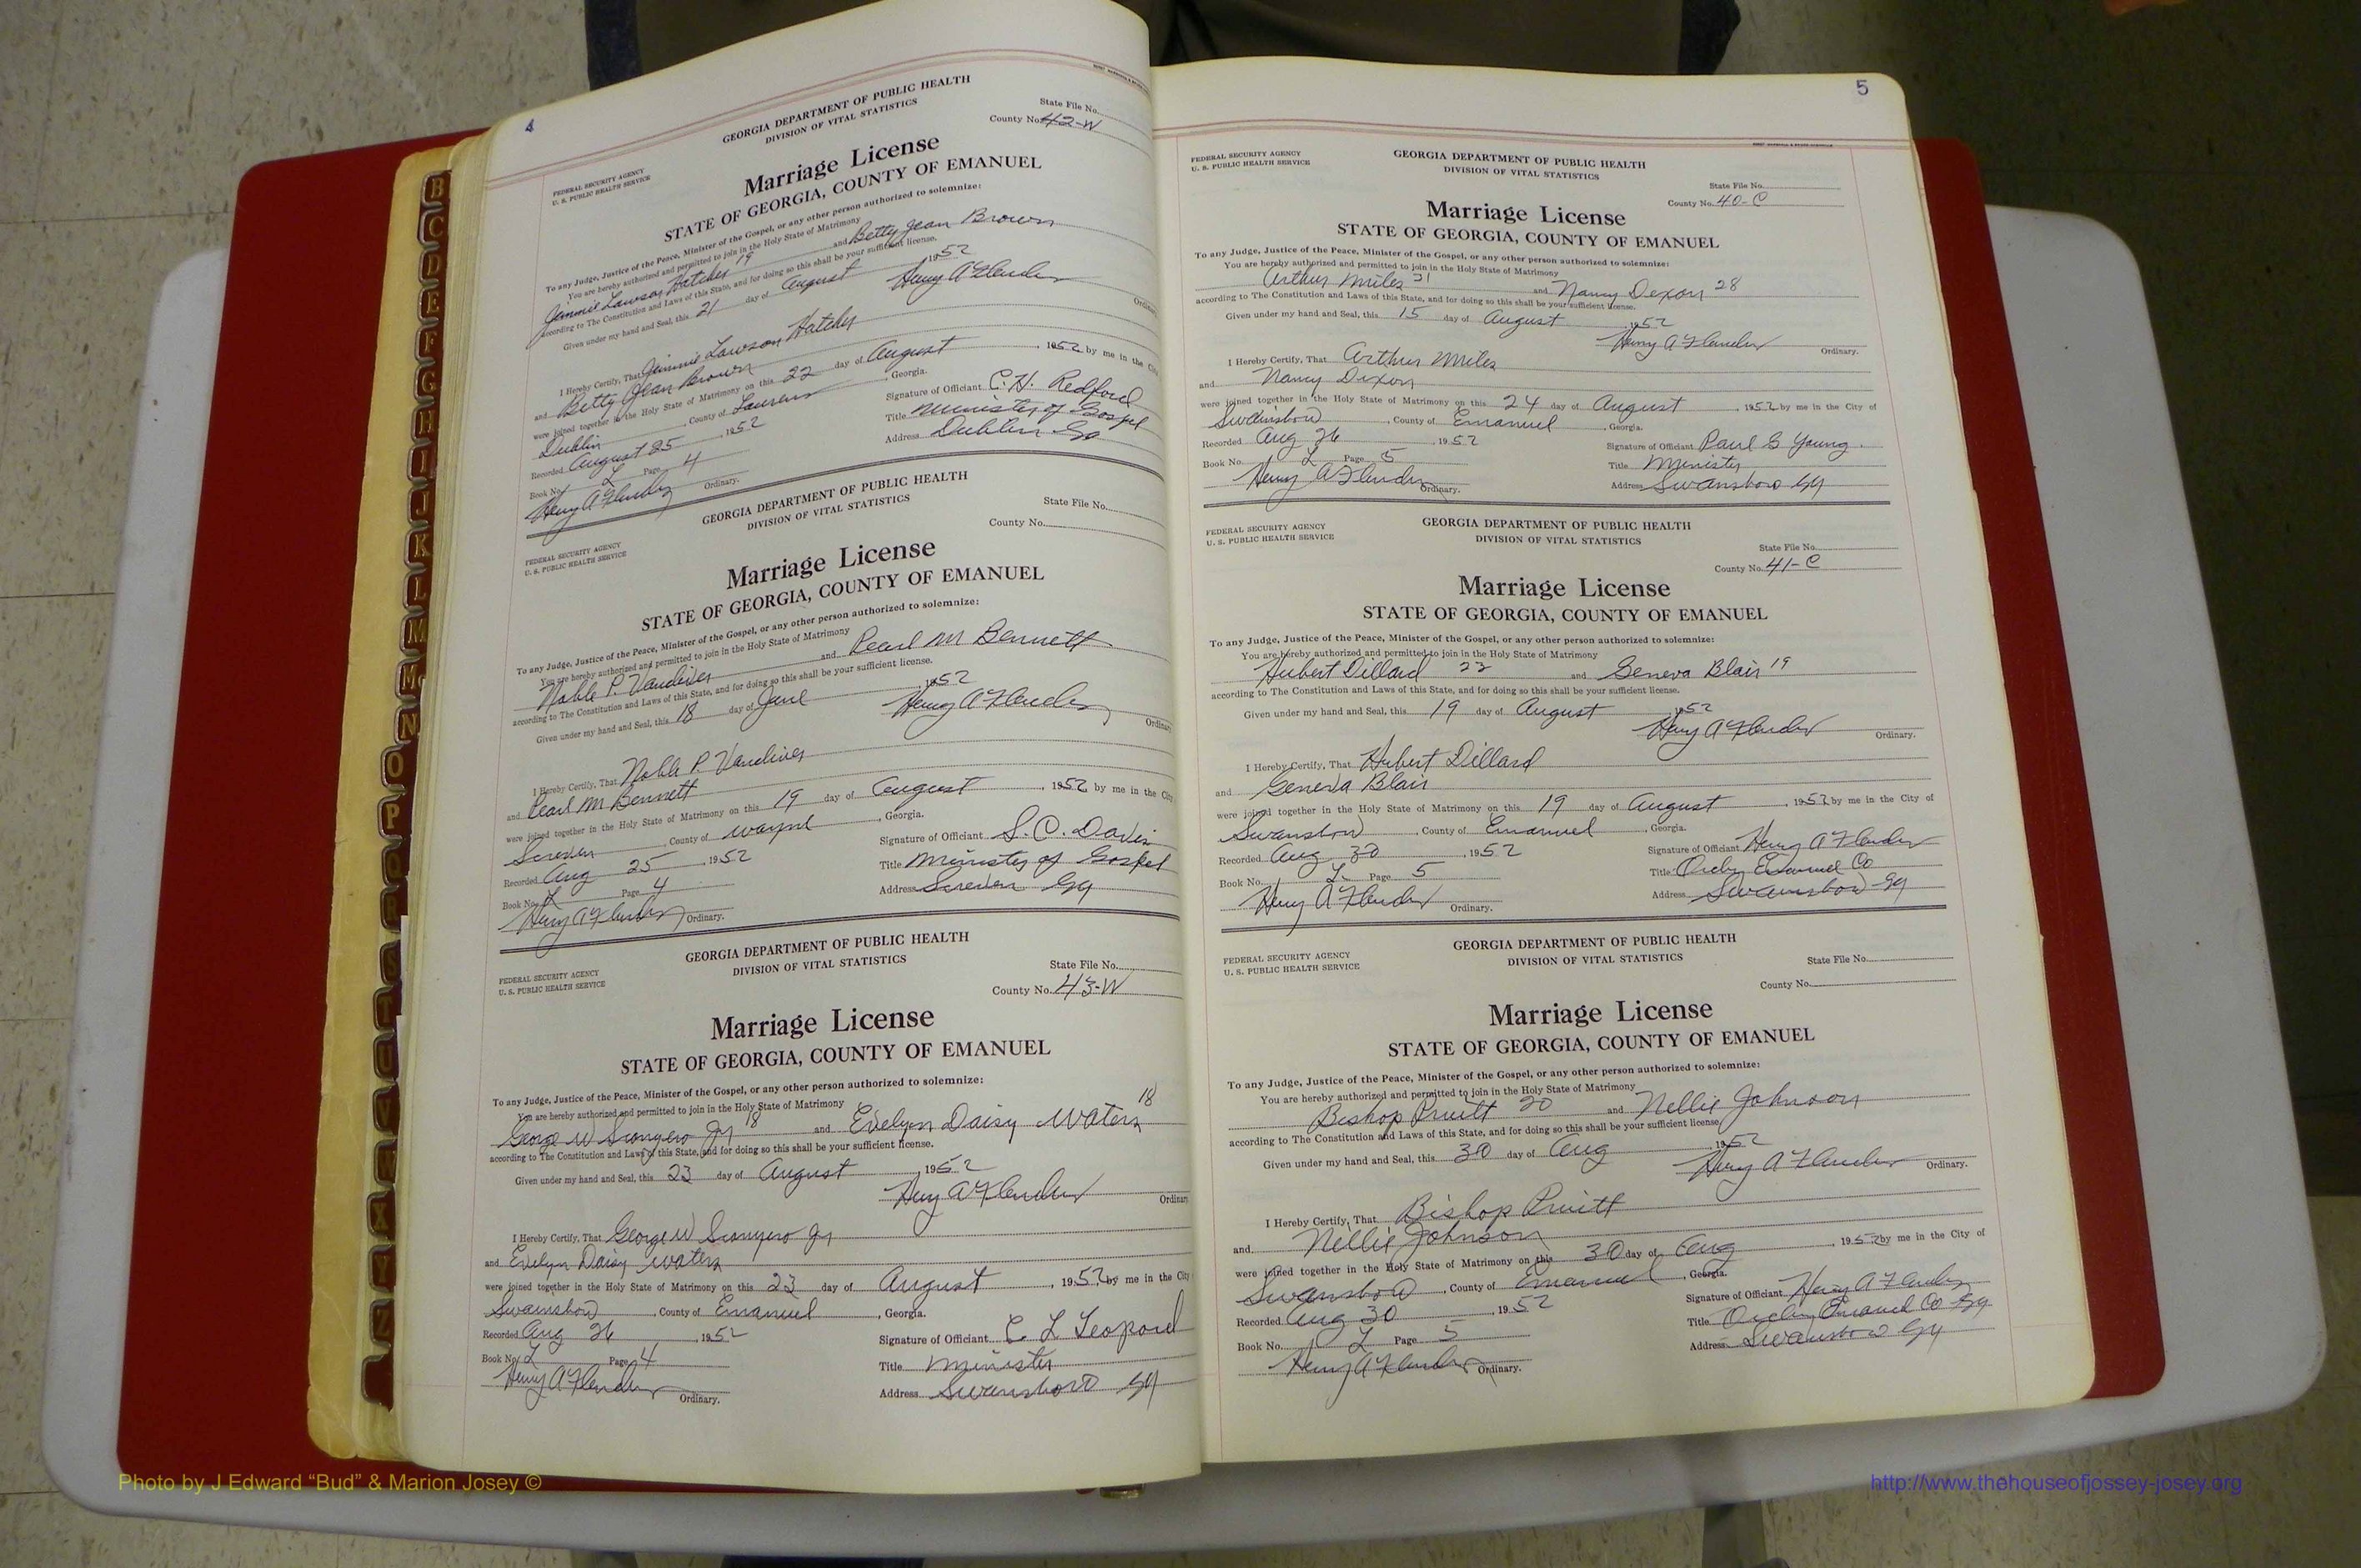 4
GEORGIA DEPARTMENT OF PUBLIC HEALTH
DIVISION OF VITAL STATISTICS
FEDERAL SECURITY AGENCY
U. S. PUBLIC HEALTH SERVICE
State File No.
County No. 42-W
Marriage License
STATE OF GEORGIA, COUNTY OF EMANUEL
To any Judge, Justice of the Peace, Minister of the Gospel, or any other person authorized to solemnize:
You are hereby authorized and permitted to join in the Holy State of Matrimony
Jimmie Lawson Hatcher 19 and Betty Jean Brown
according to The Constitution and Laws of this State, and for doing so this shall be your sufficient license.
Given under my hand and Seal, this 21 day of August 1952
Henry A Flanders
I Hereby Certify, That Jimmie Lawson Hatcher
and Betty Jean Brown
were joined together in the Holy State of Matrimony on this 22 day of August, 1952 by me in the City
Dublin, County of Laurens, Georgia.
Recorded August 25, 1952
Signature of Officiant C. H. Redford
Book No. L Page 4
Title Minister of Gospel
Henry A Flanders Ordinary.
Address Dublin Ga
GEORGIA DEPARTMENT OF PUBLIC HEALTH
DIVISION OF VITAL STATISTICS
FEDERAL SECURITY AGENCY
U. S. PUBLIC HEALTH SERVICE
State File No.
County No.
Marriage License
STATE OF GEORGIA, COUNTY OF EMANUEL
To any Judge, Justice of the Peace, Minister of the Gospel, or any other person authorized to solemnize:
You are hereby authorized and permitted to join in the Holy State of Matrimony
Noble P. Vandiver and Pearl M Bennett
according to The Constitution and Laws of this State, and for doing so this shall be your sufficient license.
Given under my hand and Seal, this 18 day of June 1952
Henry A Flanders
I Hereby Certify, That Noble P. Vandiver
and Pearl M Bennett
were joined together in the Holy State of Matrimony on this 19 day of August, 1952 by me in the City
Screven, County of Wayne, Georgia.
Recorded Aug 25, 1952
Signature of Officiant S. C. Davis
Book No. L Page 4
Title Minister of Gospel
Henry A Flanders Ordinary.
Address Screven Ga
GEORGIA DEPARTMENT OF PUBLIC HEALTH
DIVISION OF VITAL STATISTICS
FEDERAL SECURITY AGENCY
U. S. PUBLIC HEALTH SERVICE
State File No.
County No. 43-W
Marriage License
STATE OF GEORGIA, COUNTY OF EMANUEL
To any Judge, Justice of the Peace, Minister of the Gospel, or any other person authorized to solemnize:
You are hereby authorized and permitted to join in the Holy State of Matrimony
George W Jr 18 and Evelyn Daisy Waters 18
according to The Constitution and Laws of this State, and for doing so this shall be your sufficient license.
Given under my hand and Seal, this 23 day of August, 1952
Henry A Flanders
I Hereby Certify, That George W Jr
and Evelyn Daisy Waters
were joined together in the Holy State of Matrimony on this 23 day of August, 1952 by me in the City
Swainsboro, County of Emanuel, Georgia.
Recorded Aug 26, 1952
Signature of Officiant C L Leopard
Book No. L Page 4
Title Minister
Henry A Flanders Ordinary.
Address Swainsboro Ga
5
GEORGIA DEPARTMENT OF PUBLIC HEALTH
DIVISION OF VITAL STATISTICS
FEDERAL SECURITY AGENCY
U. S. PUBLIC HEALTH SERVICE
State File No.
County No. 40-C
Marriage License
STATE OF GEORGIA, COUNTY OF EMANUEL
To any Judge, Justice of the Peace, Minister of the Gospel, or any other person authorized to solemnize:
You are hereby authorized and permitted to join in the Holy State of Matrimony
Arthur Miles and Nancy Dixon 28
according to The Constitution and Laws of this State, and for doing so this shall be your sufficient license.
Given under my hand and Seal, this 15 day of August, 1952
Henry A Flanders Ordinary.
I Hereby Certify, That Arthur Miles
and Nancy Dixon
were joined together in the Holy State of Matrimony on this 24 day of August, 1952 by me in the City of
Swainsboro, County of Emanuel, Georgia.
Recorded Aug 26, 1952
Signature of Officiant Paul G Young
Book No. L Page 5
Title Minister
Henry A Flanders Ordinary.
Address Swainsboro Ga
GEORGIA DEPARTMENT OF PUBLIC HEALTH
DIVISION OF VITAL STATISTICS
FEDERAL SECURITY AGENCY
U. S. PUBLIC HEALTH SERVICE
State File No.
County No. 41-C
Marriage License
STATE OF GEORGIA, COUNTY OF EMANUEL
To any Judge, Justice of the Peace, Minister of the Gospel, or any other person authorized to solemnize:
You are hereby authorized and permitted to join in the Holy State of Matrimony
Hubert Dillard 22 and Geneva Blair 19
according to The Constitution and Laws of this State, and for doing so this shall be your sufficient license.
Given under my hand and Seal, this 19 day of August, 1952
Henry A Flanders Ordinary.
I Hereby Certify, That Hubert Dillard
and Geneva Blair
were joined together in the Holy State of Matrimony on this 19 day of August, 1952 by me in the City of
Swainsboro, County of Emanuel, Georgia.
Recorded Aug 30, 1952
Signature of Officiant Henry A Flanders
Book No. L Page 5
Title Ordry Emanuel Co
Henry A Flanders Ordinary.
Address Swainsboro Ga
GEORGIA DEPARTMENT OF PUBLIC HEALTH
DIVISION OF VITAL STATISTICS
FEDERAL SECURITY AGENCY
U. S. PUBLIC HEALTH SERVICE
State File No.
County No.
Marriage License
STATE OF GEORGIA, COUNTY OF EMANUEL
To any Judge, Justice of the Peace, Minister of the Gospel, or any other person authorized to solemnize:
You are hereby authorized and permitted to join in the Holy State of Matrimony
Bishop Pruitt 20 and Nellie Johnson
according to The Constitution and Laws of this State, and for doing so this shall be your sufficient license.
Given under my hand and Seal, this 30 day of Aug, 1952
Henry A Flanders Ordinary.
I Hereby Certify, That Bishop Pruitt
and Nellie Johnson
were joined together in the Holy State of Matrimony on this 30 day of Aug, 1952 by me in the City of
Swainsboro, County of Emanuel, Georgia.
Recorded Aug 30, 1952
Signature of Officiant Henry A Flanders
Book No. L Page 5
Title Ordry Emanuel Co Ga
Henry A Flanders Ordinary.
Address Swainsboro Ga
B
C
D
E
F
G
H
I
J
K
L
M
Mc
N
O
P
Q
R
S
T
U
V
W
X
Y
Z
Photo by J Edward “Bud” & Marion Josey ©
http://www.thehouseofjossey-josey.org